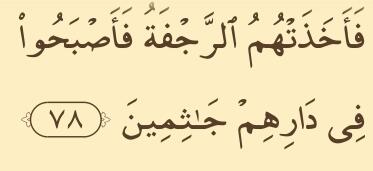 فَأَخَذَتْهُمُ ٱلرَّجْفَةُ فَأَصْبَحُوا۟
فِى دَارِهِمْ جَـٰثِمِينَ ٧٨